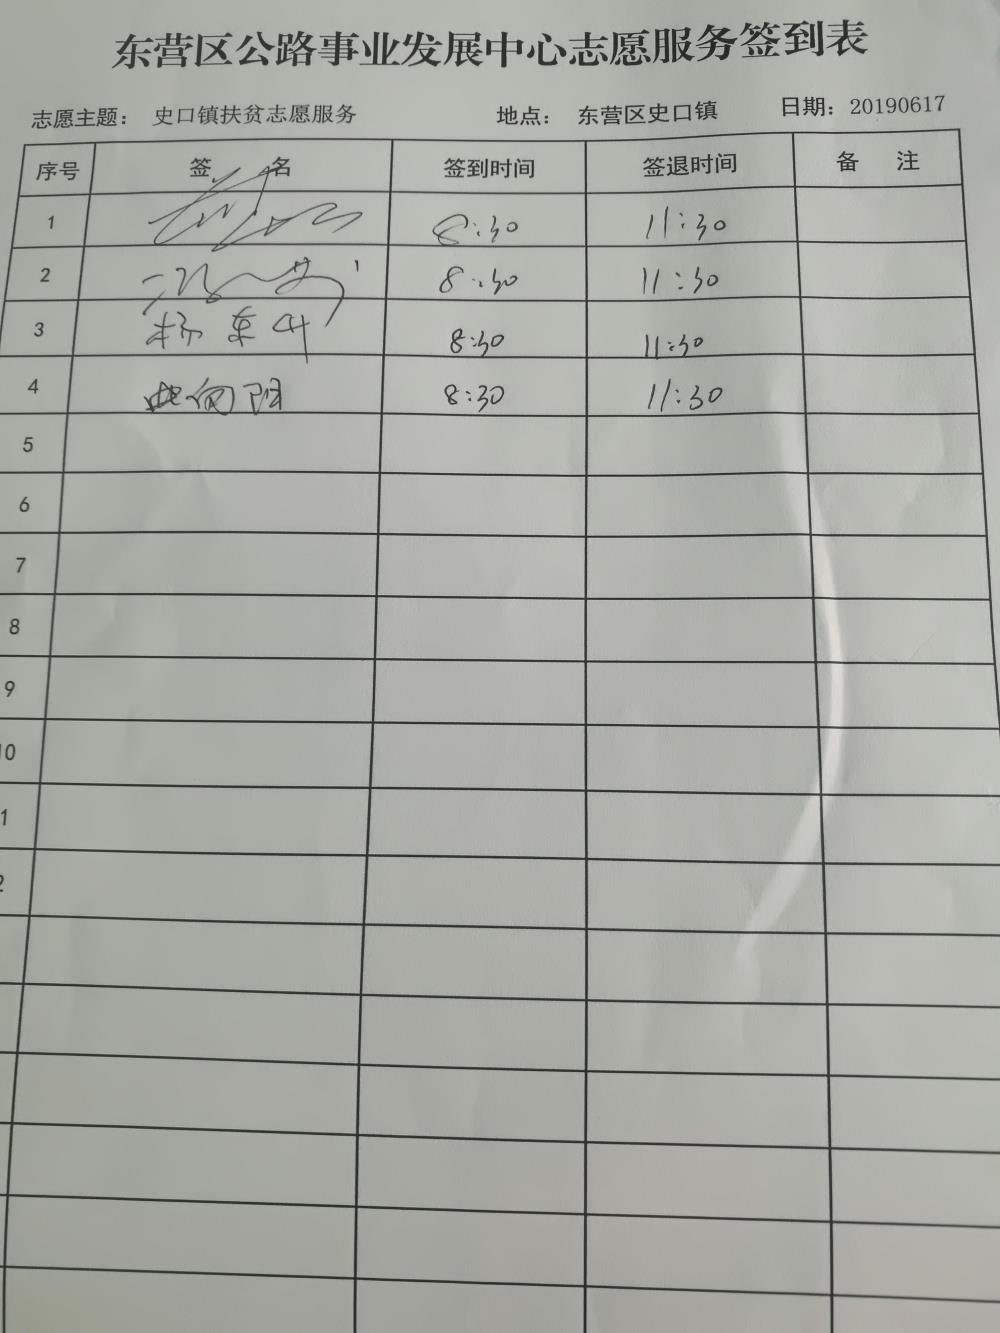 东营区公路事业发展中心志愿服务签到表
志愿主题： 史口镇扶贫志愿服务 地点： 东营区史口镇 日期：20190617
序号 签 名 签到时间 签退时间 备 注
1 8:30 11:30
2 8:30 11:30
3 8:30 11:30
4 8:30 11:30
5
6
7
8
9
10
1
2